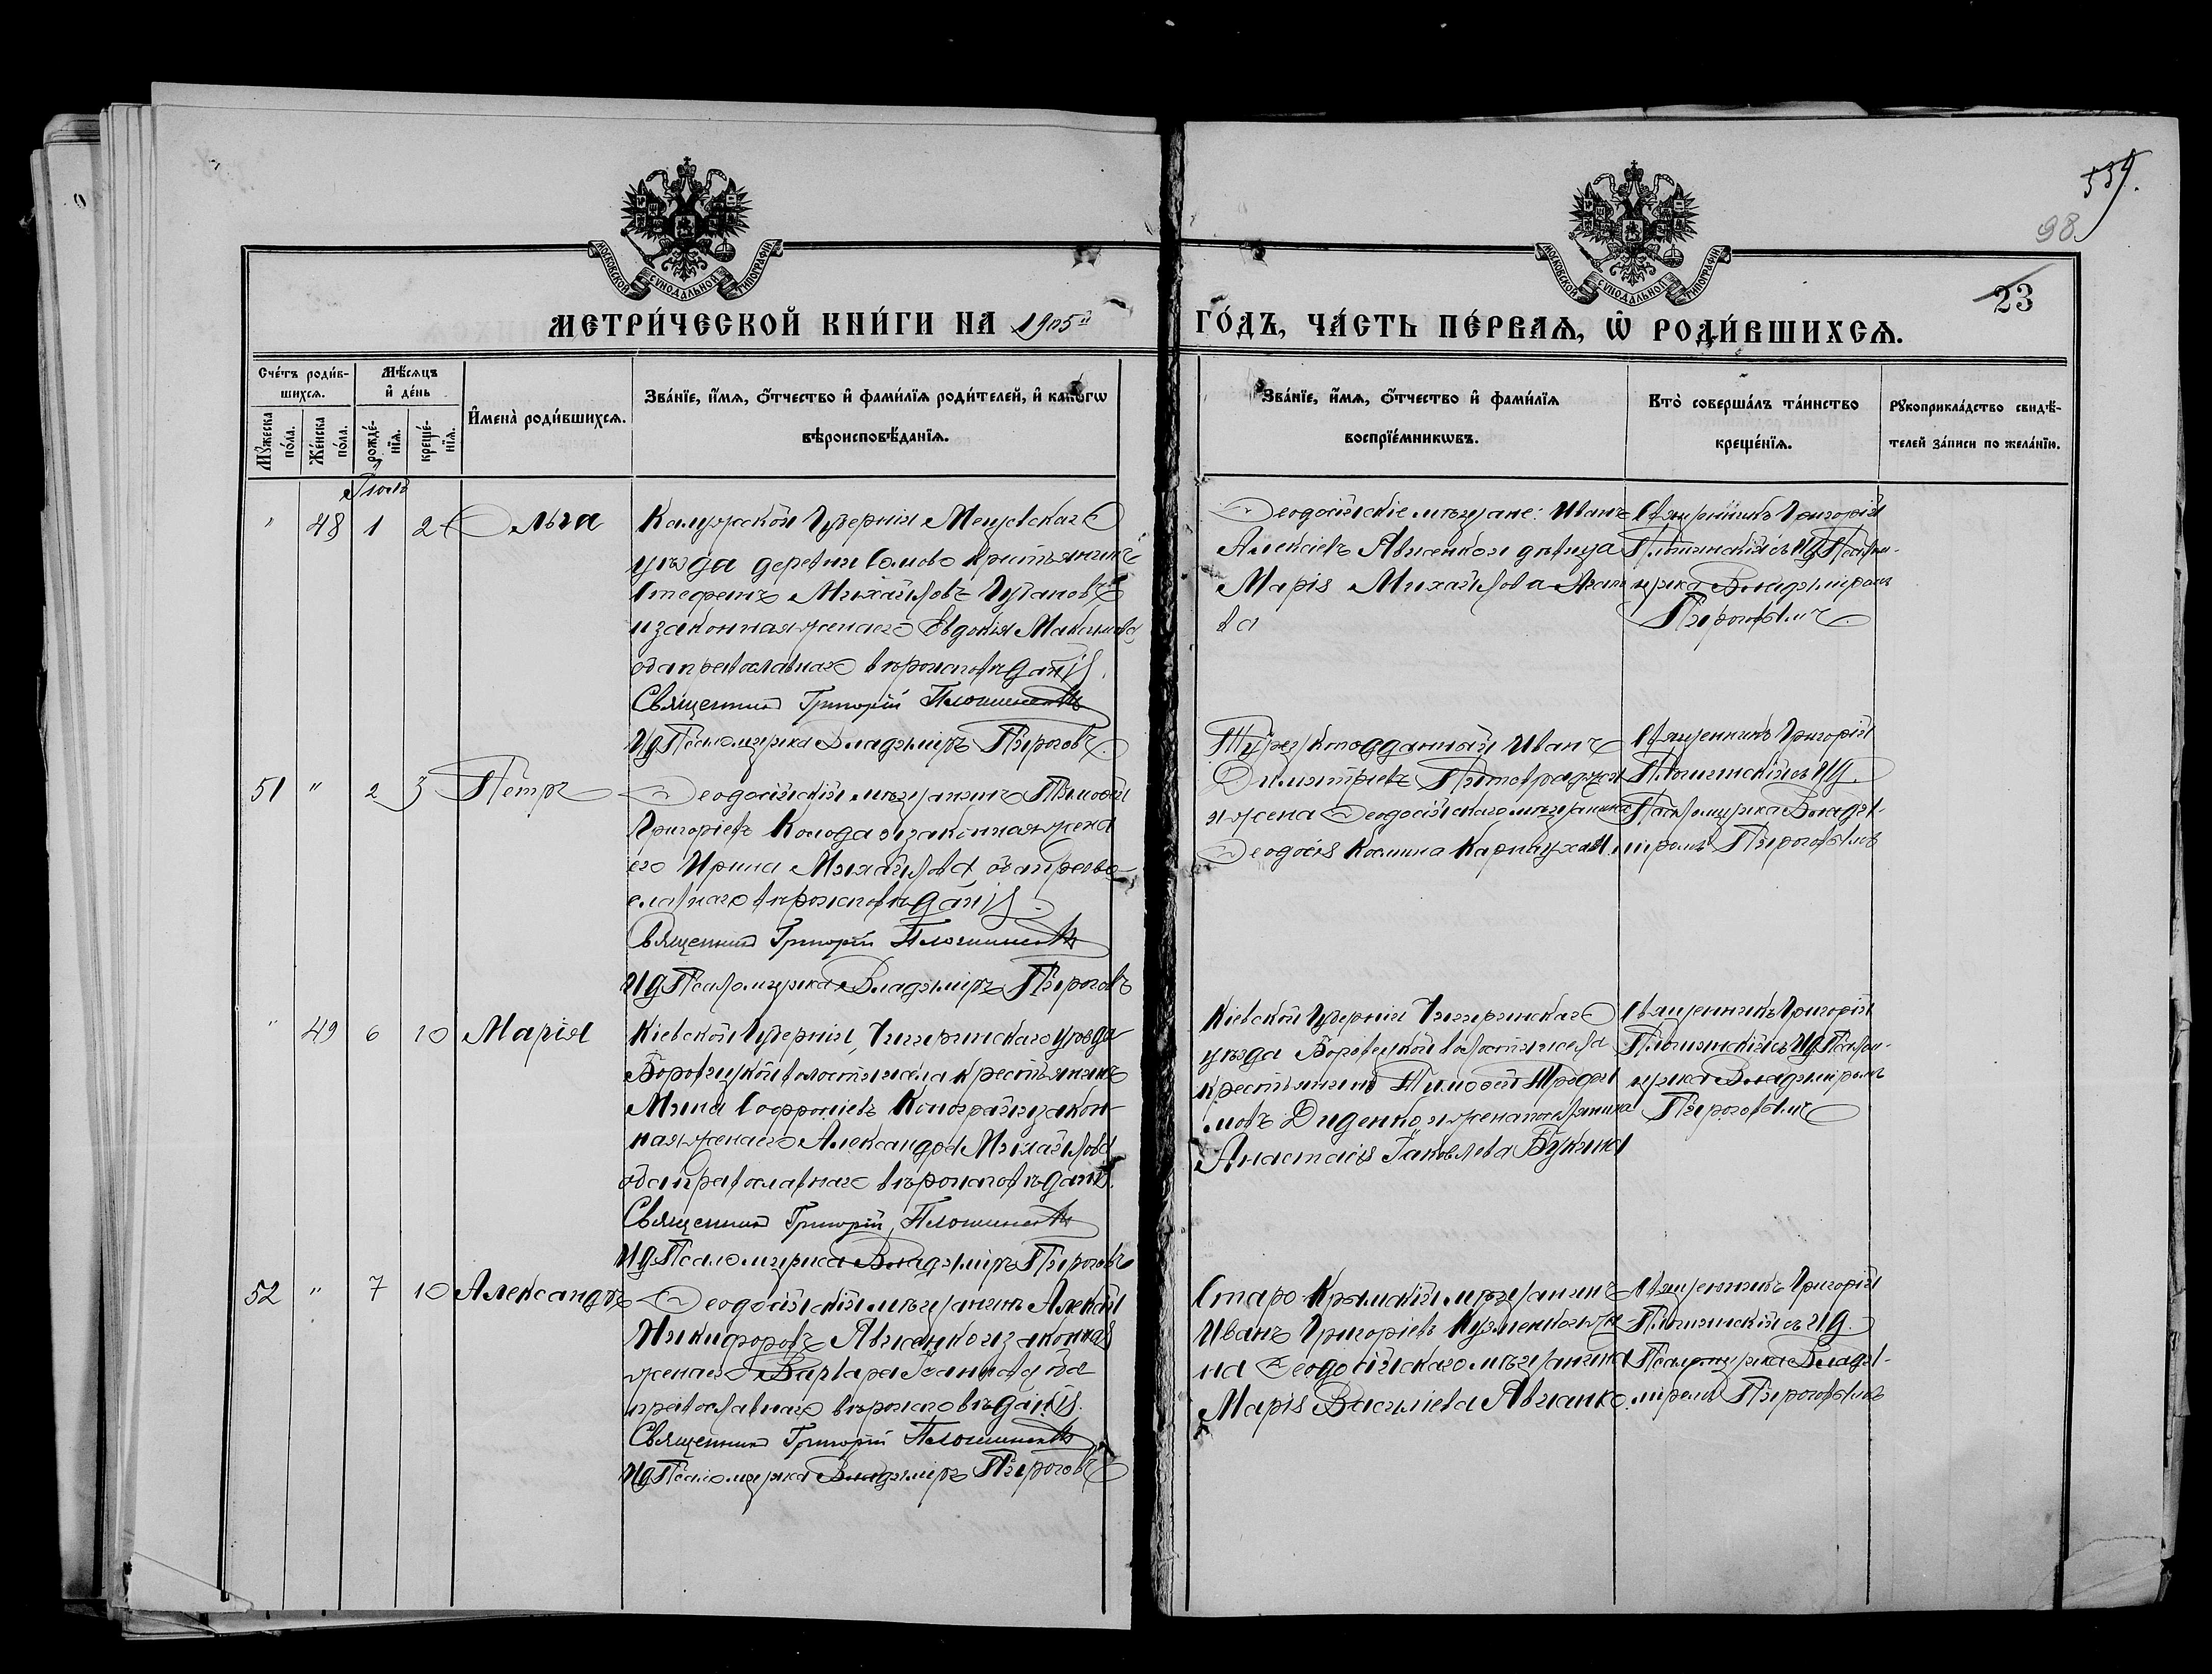 539.
98
23
МОСКОВСКОЙ СѴНОДАЛЬНОЙ ТИПОГРАФІИ
МОСКОВСКОЙ СѴНОДАЛЬНОЙ ТИПОГРАФІИ
МЕТРИ́ЧЕСКОЙ КНИ́ГИ НА 1905й ГО́ДЪ, ЧА́СТЬ ПЕ́РВАѦ, Ѡ҆ РОДИ́ВШИХСѦ.
Сче́тъ роди́в-
шихсѧ.
Мѹ́жеска по́ла.
Же́нска по́ла.
Мѣ́сѧцъ
и҆ де́нь
рожде́-нїѧ.
креще́-нїѧ.
И҆мена̀ роди́вшихсѧ.
Зва́нїе, и҆́мѧ, ѻ҆́тчество и҆ фамилїѧ роди́телей, и҆ како́гѡ
вѣроисповѣ́данїѧ.
Зва́нїе, и҆́мѧ, ѻ҆́тчество и҆ фами́лїѧ
воспрїе́мникѡвъ.
Кто̀ соверша́лъ та́инство
креще́нїѧ.
Рѹкоприкла́дство свидѣ́-
телей за́писи по жела́нїю.
Іюль
" 48 1 2 Ольга
Калужской Губерніи Мещовскаго
уѣзда деревни Сомово крестьянинъ
Стефанъ Михайловъ
и законная жена его Евдокія Максимова
оба православнаго вѣроисповѣданія.
Священникъ Григорій
Ид Псаломщика Владиміръ Пироговъ
Ѳеодосійскіе мѣщане: Иванъ
Алексіевъ и дѣвица
Марія Михайлова
ва
Священникъ Григорій
съ Ид Псалом-
щика Владиміромъ
Пироговымъ
51 " 2 3 Петръ
Ѳеодосійскій мѣщанинъ Тимоѳей
Григоріевъ Колода и законная жена
его Ирина Михайлова, оба право-
славнаго вѣроисповѣданія.
Священникъ Григорій
Ид Псаломщика Владиміръ Пироговъ
Турецкоподданный Иванъ
Димитріевъ
и жена Ѳеодосійскаго мѣщанина
Ѳеодосія Косьмина
Священникъ Григорій
съ Ид.
Псаломщика Влади-
міромъ Пироговымъ
" 49 6 10 Марія
Кіевской Губерніи, Чигиринскаго уѣзда
Боровицкой волости и села крестьянинъ
Мина Софроніевъ и закон-
ная жена его Александра Михайлова
оба православнаго вѣроисповѣданія.
Священникъ Григорій
Ид Псаломщика Владиміръ Пироговъ
Кіевской Губерніи Чигиринскаго
уѣзда Боровицкой волости и села
крестьянинъ Тимоѳей
Диденко и жена
Анастасія Іаковлева
Священникъ Григорій
съ Ид Псалом-
щика Владиміромъ
Пироговымъ
52 " 7 10 Александръ
Ѳеодосійскій мѣщанинъ Алексѣй
Никифоровъ и законная
жена его Варвара Іоаннова оба
православнаго вѣроисповѣданія.
Священникъ Григорій
Ид Псаломщика Владиміръ Пироговъ
Старо-Крымскій мѣщанинъ
Иванъ Григоріевъ Кузменко и же-
на Ѳеодосійскаго мѣщанина
Марія Василіева
Священникъ Григорій
съ Ид.
Псаломщика Влади-
міромъ Пироговымъ